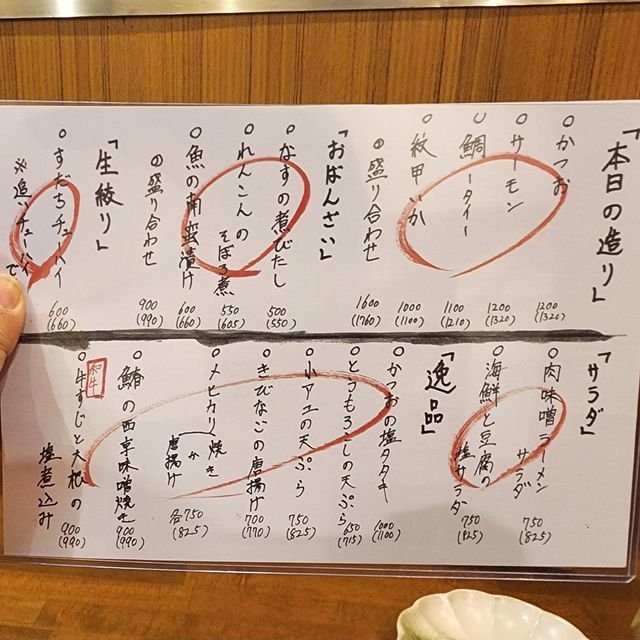 「本日の造り」
○かつお 1200 (1320)
○サーモン 1200 (1320)
○鯛 1100 (1210)
○紋甲いか 1000 (1100)
◎盛り合わせ 1600 (1760)
「おばんざい」
○なすの煮びたし 500 (550)
○れんこんの
そぼろ煮 550 (605)
○魚の南蛮漬け 600 (660)
◎盛り合わせ 900 (990)
「生絞り」
○すだちチューハイ 600 (660)
※追いチューハイ
「サラダ」
○肉味噌ラーメン
サラダ 750 (825)
○海鮮と豆腐の
塩サラダ 750 (825)
「逸品」
○かつおの塩タタキ 1000 (1100)
○とうもろこしの天ぷら 650 (715)
○小アユの天ぷら 750 (825)
○きびなごの唐揚げ 700 (770)
○メヒカリ
焼き
か
唐揚げ
各750 (825)
○鰆の西京味噌焼き 900 (990)
和牛
○牛すじと大根の
塩煮込み 900 (990)